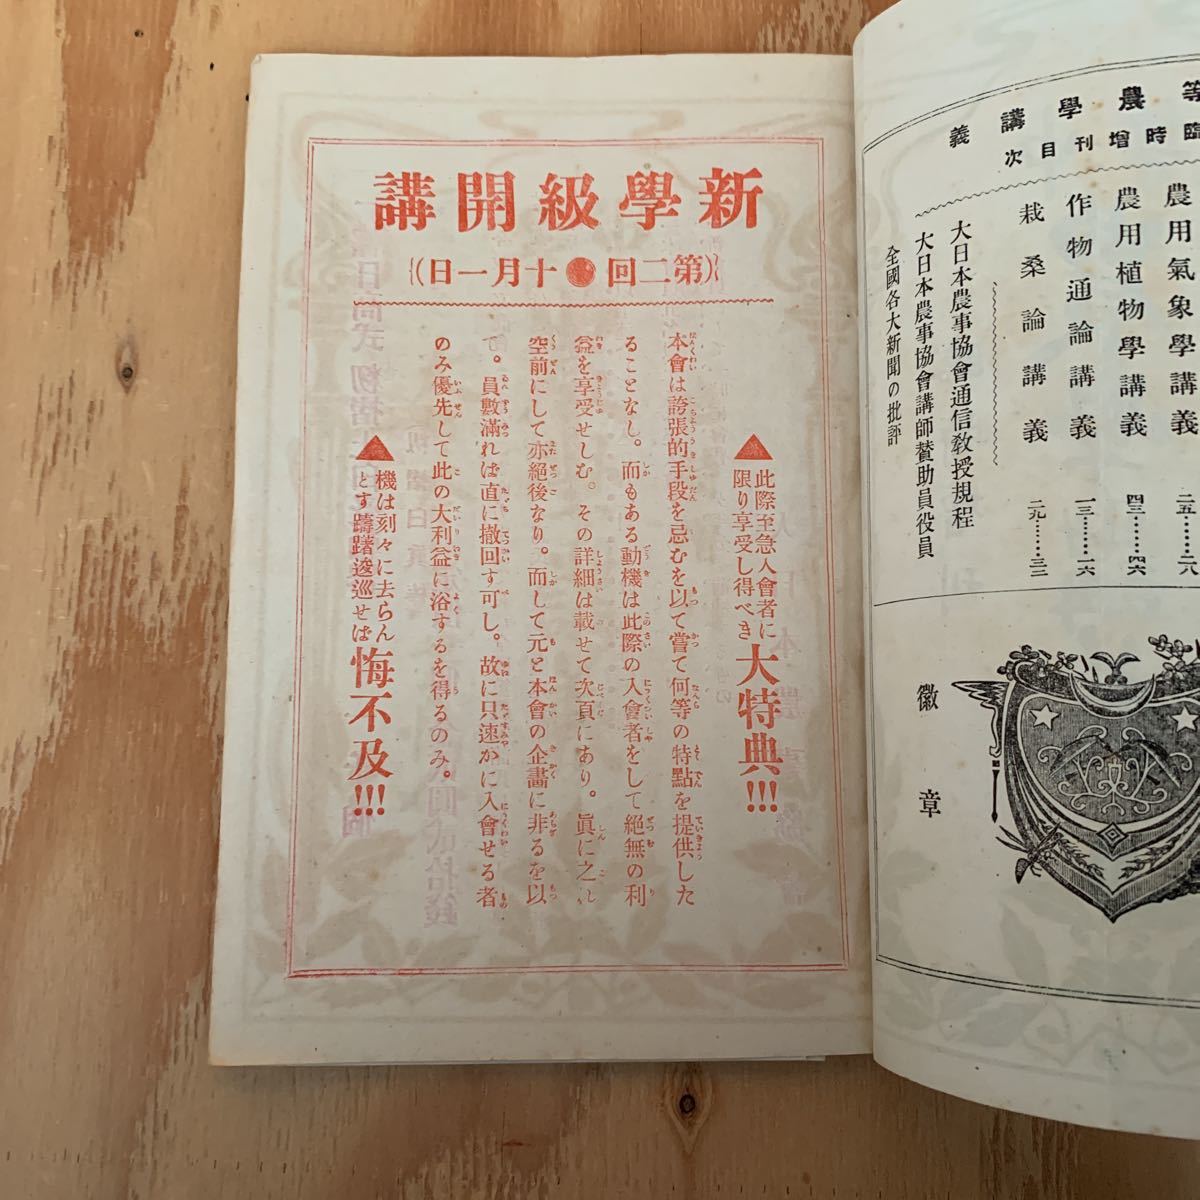 新學級開講
(第二回●十月一日)
▲此際至急入會者に
限り享受し得べき
大特典!!!
本會は誇張的手段を忌むを以て嘗て何等の特點を提供した
ることなし。而もある動機は此際の入會者をして絕無の利
益を享受せしむ。その詳細は載せて次頁にあり。眞に之れ
空前にして亦絕後なり。而して元と本會の企畫に非るを以
て。員數滿れば直に撤回す可し。故に只速かに入會せる者
のみ優先して此の大利益に浴するを得るのみ。
▲機は刻々に去らん
とす躊躇逡巡せば
悔不及!!!
等農學講義
臨時增刊目次
農用氣象學講義 二五……二八
農用植物學講義 四三……四六
作物通論講義 一三……一六
栽桑論講義 二九……三二
大日本農事協會通信教授規程
大日本農事協會講師贊助員役員
全國各大新聞の批評
徽章